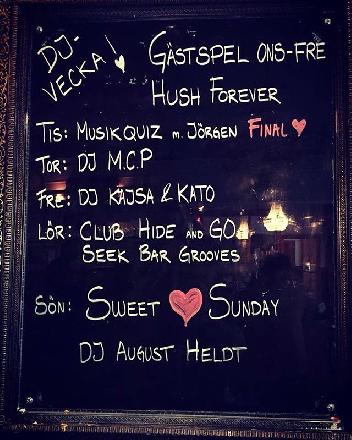 DJ-VECKA!
GÄSTSPEL ONS-FRE
HUSH FOREVER
TIS: MUSIKQUIZ M. JÖRGEN FINAL
TOR: DJ M.C.P
FRE: DJ KAJSA & KATO
LÖR: CLUB HIDE AND GO
SEEK BAR GROOVES
SÖN: SWEET SUNDAY
DJ AUGUST HELDT